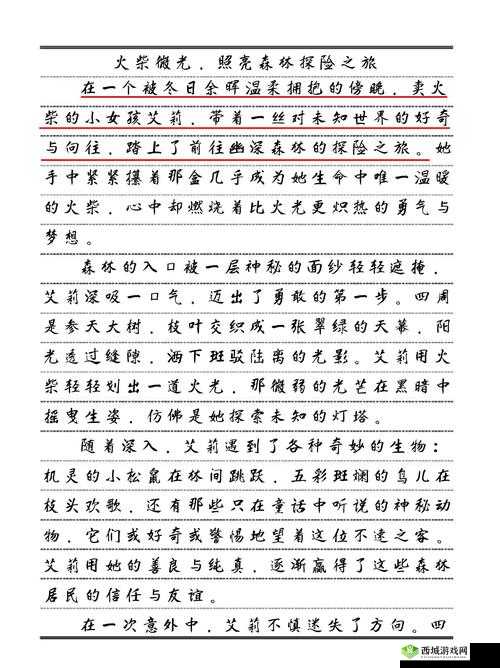 火柴微光，照亮森林探险之旅
在一个被冬日余晖温柔拥抱的傍晚，卖火
柴的小女孩艾莉，带着一丝对未知世界的好奇
与向往，踏上了前往幽深森林的探险之旅。她
手中紧紧攥着那盒几乎成为她生命中唯一温暖
的火柴，心中却燃烧着比火光更炽热的勇气与
梦想。
森林的入口被一层神秘的面纱轻轻遮掩，
艾莉深吸一口气，迈出了勇敢的第一步。四周
是参天大树，枝叶交织成一张翠绿的天幕，阳
光透过缝隙，洒下斑驳陆离的光影。艾莉用火
柴轻轻划出一道火光，那微弱的光芒在黑暗中
摇曳生姿，仿佛是她探索未知的灯塔。
随着深入，艾莉遇到了各种奇妙的生物：
机灵的小松鼠在林间跳跃，五彩斑斓的鸟儿在
枝头欢歌，还有那些只在童话中听说的神秘动
物，它们或好奇或警惕地望着这位不速之客。
艾莉用她的善良与纯真，逐渐赢得了这些森林
居民的信任与友谊。
在一次意外中，艾莉不慎迷失了方向。四
西城游戏网